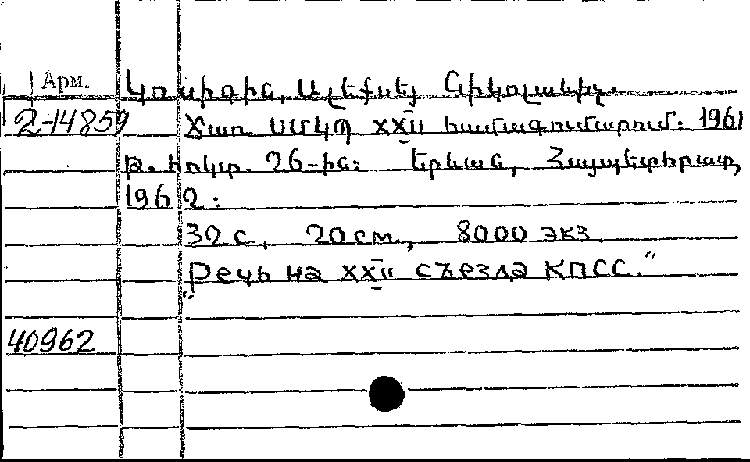 Арм. Կոսիգին, Ալեքսեյ Նիկոլաևիչ.
2-14859 Ճառ ՍՄԿՊ XXII համագումարում: 1961
թ. հոկտ. 26-ին: Երևան, Հայպետհրատ,
1962:
32 с, 20 см., 8000 экз.
"Речь на XXII съезда КПСС."
40962